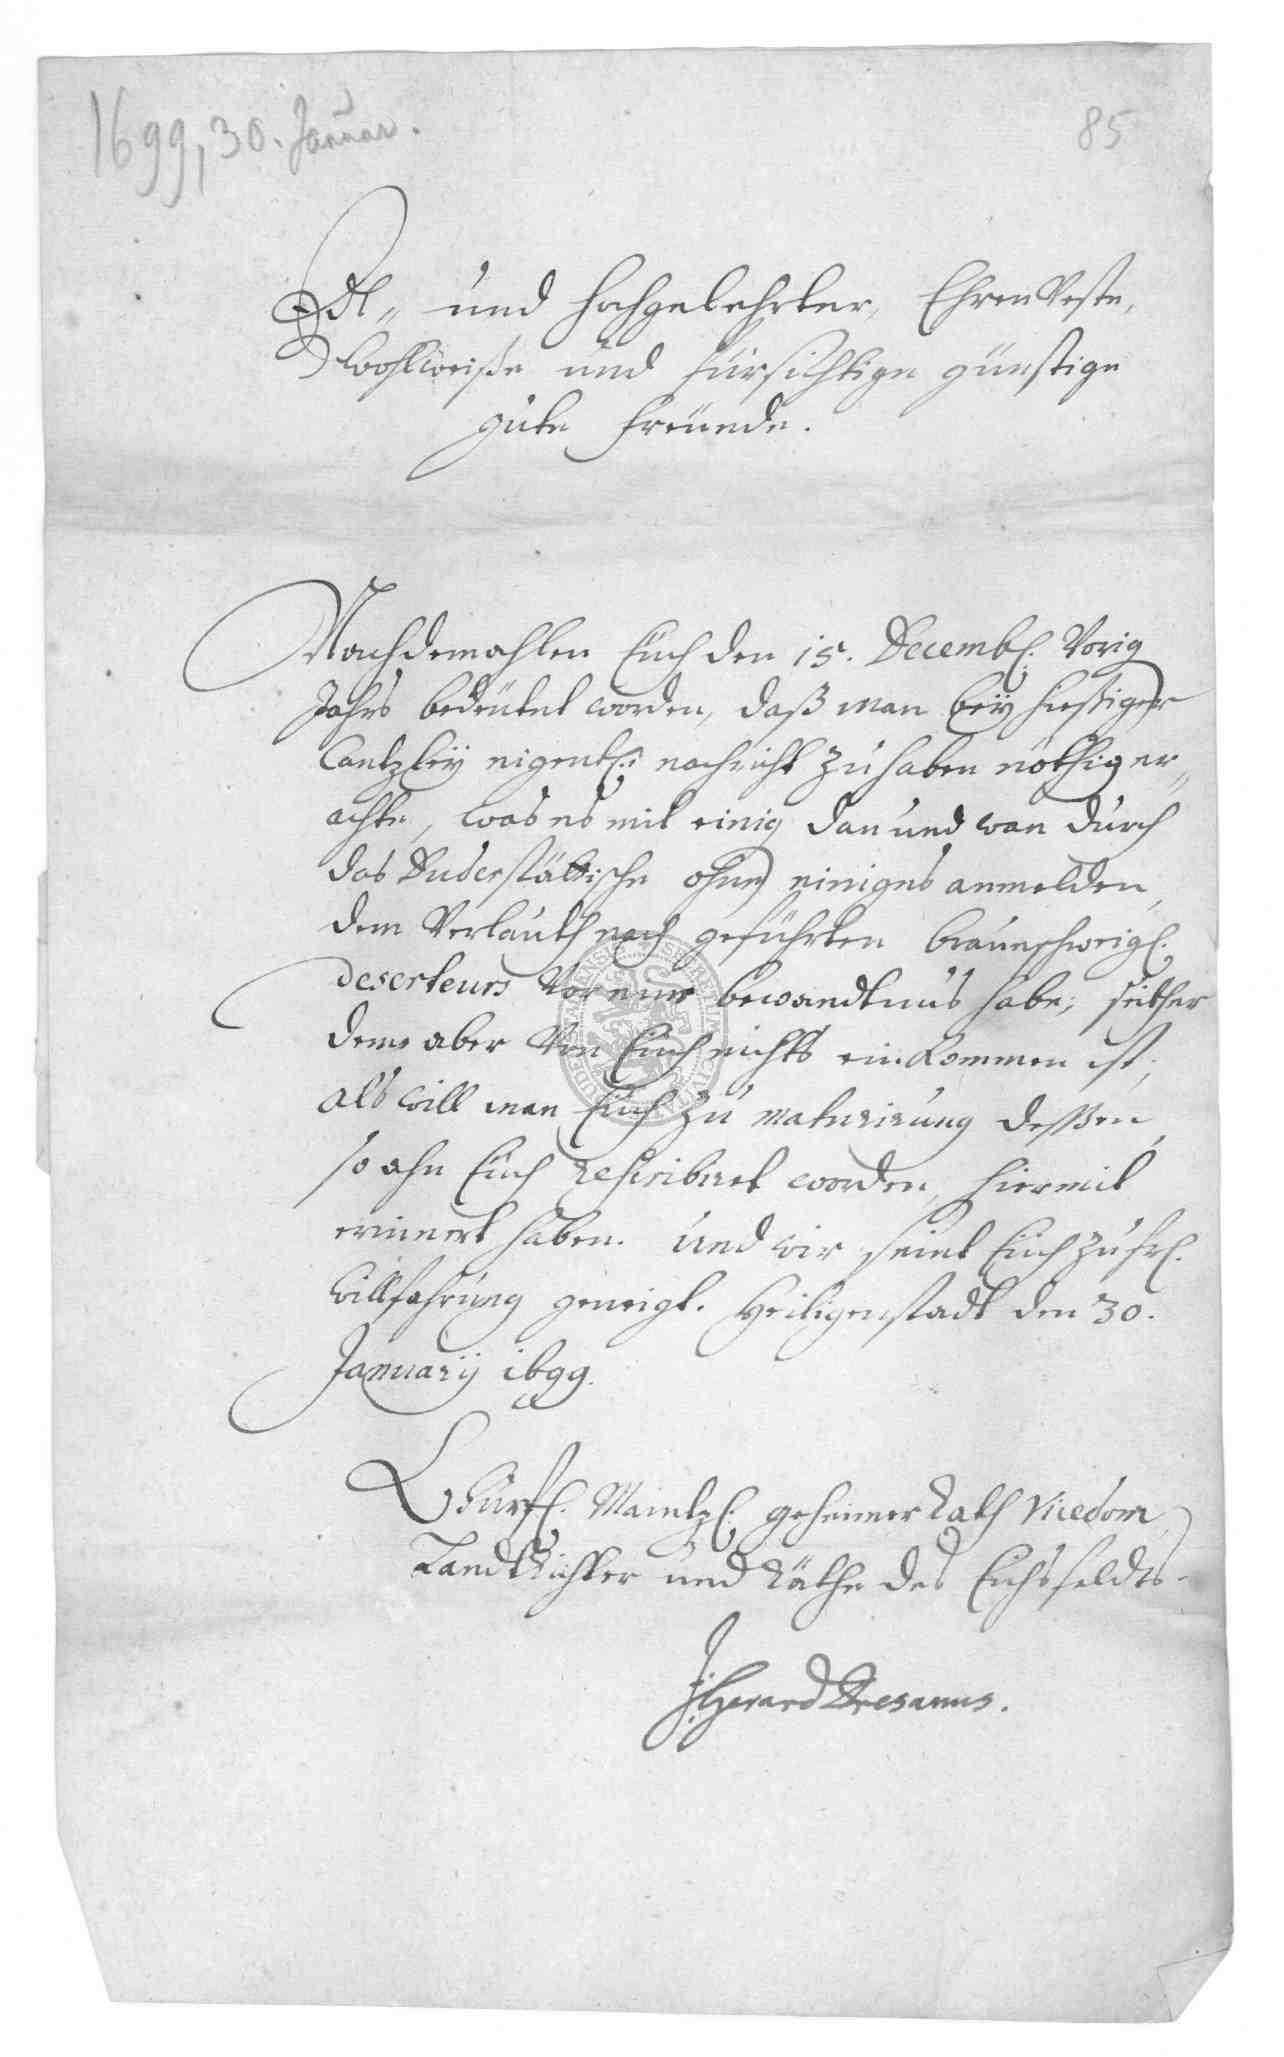 1699, 30. Januar.
85
Edl,, und hochgelehrter, EhrenVeste,
Wohlweiße und fürsichtige günstige
gute Freünde.
Nachdemahlen Euch den 15. Decemb: Vorig
Jahrs bedeutet worden, daß man beÿ hießiger
Cantzleÿ eigentl: nachricht zu haben nöthig er,,
achte, was es mit einig dan und wan durch
das Duderstättische ohne einiges anmelden,
dem Verlauth nach geführten braunschweigl:
deserteurs Vor eine bewandtnus habe; seither
deme aber Von Euch nichts einkommen ist;
als will man Euch zu maturirung deßen,
so ahn Euch rescribiret worden, hiermit
erinnert haben. und wir seint Euch zu frl:
willfahrung geneigt. Heiligenstadt den 30.
Januarÿ 1699.
Churf: Maintzl: geheimer Rath Vicedom,
Landtrichter und Räthe des Eichsfeldts.
J: Gerard